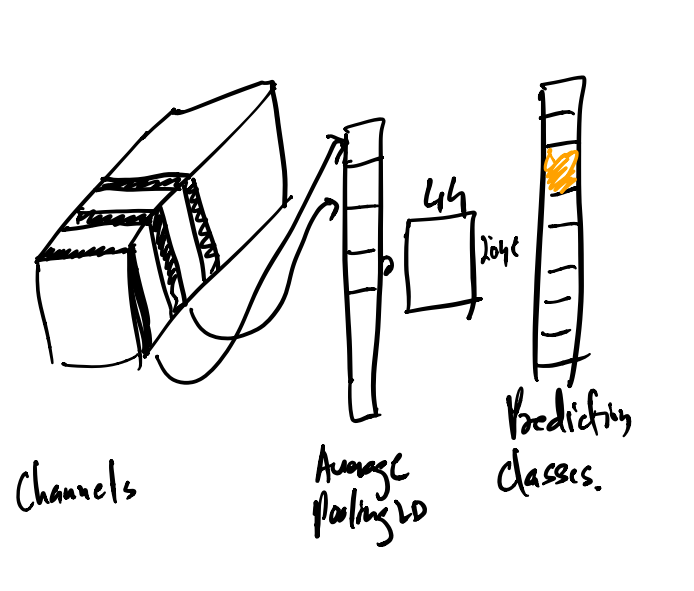 44
Channels
Average
Pooling 2D
Prediction
Classes.